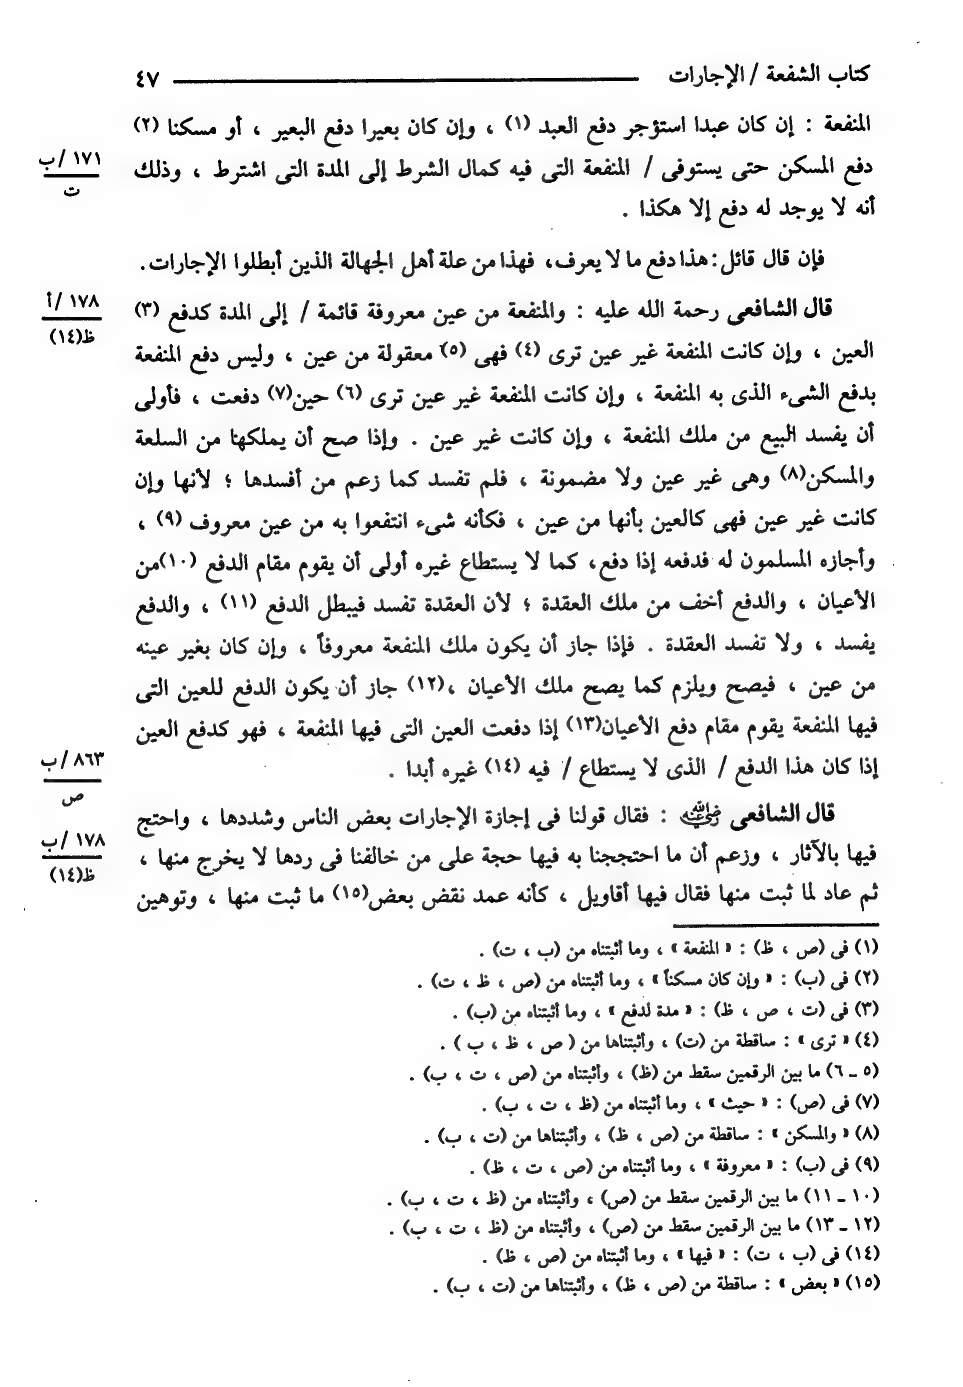 كتاب الشفعة / الإجارات ٤٧
المنفعة : إن كان عبدا استؤجر دفع العبد (١) ، وإن كان بعيرا دفع البعير ، أو مسكنا (٢)
دفع المسكن حتى يستوفى / المنفعة التى فيه كمال الشرط إلى المدة التى اشترط ، وذلك
١٧١ / ب
ت
أنه لا يوجد له دفع إلا هكذا .
فإن قال قائل : هذا دفع ما لا يعرف ، فهذا من علة أهل الجهالة الذين أبطلوا الإجارات .
قال الشافعى رحمة الله عليه : والمنفعة من عين معروفة قائمة / إلى المدة كدفع (٣)
١٧٨ / أ
ظ(١٤)
العين ، وإن كانت المنفعة غير عين ترى (٤) فهى (٥) معقولة من عين ، وليس دفع المنفعة
بدفع الشىء الذى به المنفعة ، وإن كانت المنفعة غير عين ترى (٦) حين(٧) دفعت ، فأولى
أن يفسد البيع من ملك المنفعة ، وإن كانت غير عين . وإذا صح أن يملكها من السلعة
والمسكن(٨) وهى غير عين ولا مضمونة ، فلم تفسد كما زعم من أفسدها ؛ لأنها وإن
كانت غير عين فهى كالعين بأنها من عين ، فكأنه شىء انتفعوا به من عين معروف (٩) ،
وأجازه المسلمون له فدفعه إذا دفع، كما لا يستطاع غيره أولى أن يقوم مقام الدفع (١٠)من
الأعيان ، والدفع أخف من ملك العقدة ؛ لأن العقدة تفسد فيبطل الدفع (١١) ، والدفع
يفسد ، ولا تفسد العقدة . فإذا جاز أن يكون ملك المنفعة معروفاً ، وإن كان بغير عينه
من عين ، فيصح ويلزم كما يصح ملك الأعيان ،(١٢) جاز أن يكون الدفع للعين التى
فيها المنفعة يقوم مقام دفع الأعيان(١٣) إذا دفعت العين التى فيها المنفعة ، فهو كدفع العين
إذا كان هذا الدفع / الذى لا يستطاع / فيه (١٤) غيره أبدا .
٨٦٣ / ب
ص
قال الشافعى رضي الله عنه : فقال قولنا فى إجازة الإجارات بعض الناس وشددها ، واحتج
١٧٨ / ب
ظ(١٤)
فيها بالآثار ، وزعم أن ما احتججنا به فيها حجة على من خالفنا فى ردها لا يخرج منها ،
ثم عاد لما ثبت منها فقال فيها أقاويل ، كأنه عمد نقض بعض(١٥) ما ثبت منها ، وتوهين
(١) فى (ص ، ظ) : « المنفعة » ، وما أثبتناه من (ب ، ت) .
(٢) فى (ب) : « وإن كان مسكناً » ، وما أثبتناه من (ص ، ظ ، ت) .
(٣) فى (ت ، ص ، ظ) : « مدة لدفع » ، وما أثبتناه من (ب) .
(٤) « ترى » : ساقطة من (ت) ، وأثبتناها من ( ص ، ظ ، ب ) .
(٥ ـ ٦) ما بين الرقمين سقط من (ظ) ، وأثبتناه من (ص ، ت ، ب) .
(٧) فى (ص) : « حيث » ، وما أثبتناه من (ظ ، ت ، ب) .
(٨) « والمسكن » : ساقطة من (ص ، ظ) ، وأثبتناها من (ت ، ب) .
(٩) فى (ب) : « معروفة » ، وما أثبتناه من (ص ، ت ، ظ) .
(١٠ ـ ١١) ما بين الرقمين سقط من (ص) ، وأثبتناه من (ظ ، ت ، ب) .
(١٢ ـ ١٣) ما بين الرقمين سقط من (ص) ، وأثبتناه من (ظ ، ت ، ب) .
(١٤) فى (ب ، ت) : « فيها » ، وما أثبتناه من (ص ، ظ) .
(١٥) « بعض » : ساقطة من (ص ، ظ) ، وأثبتناها من (ت ، ب) .